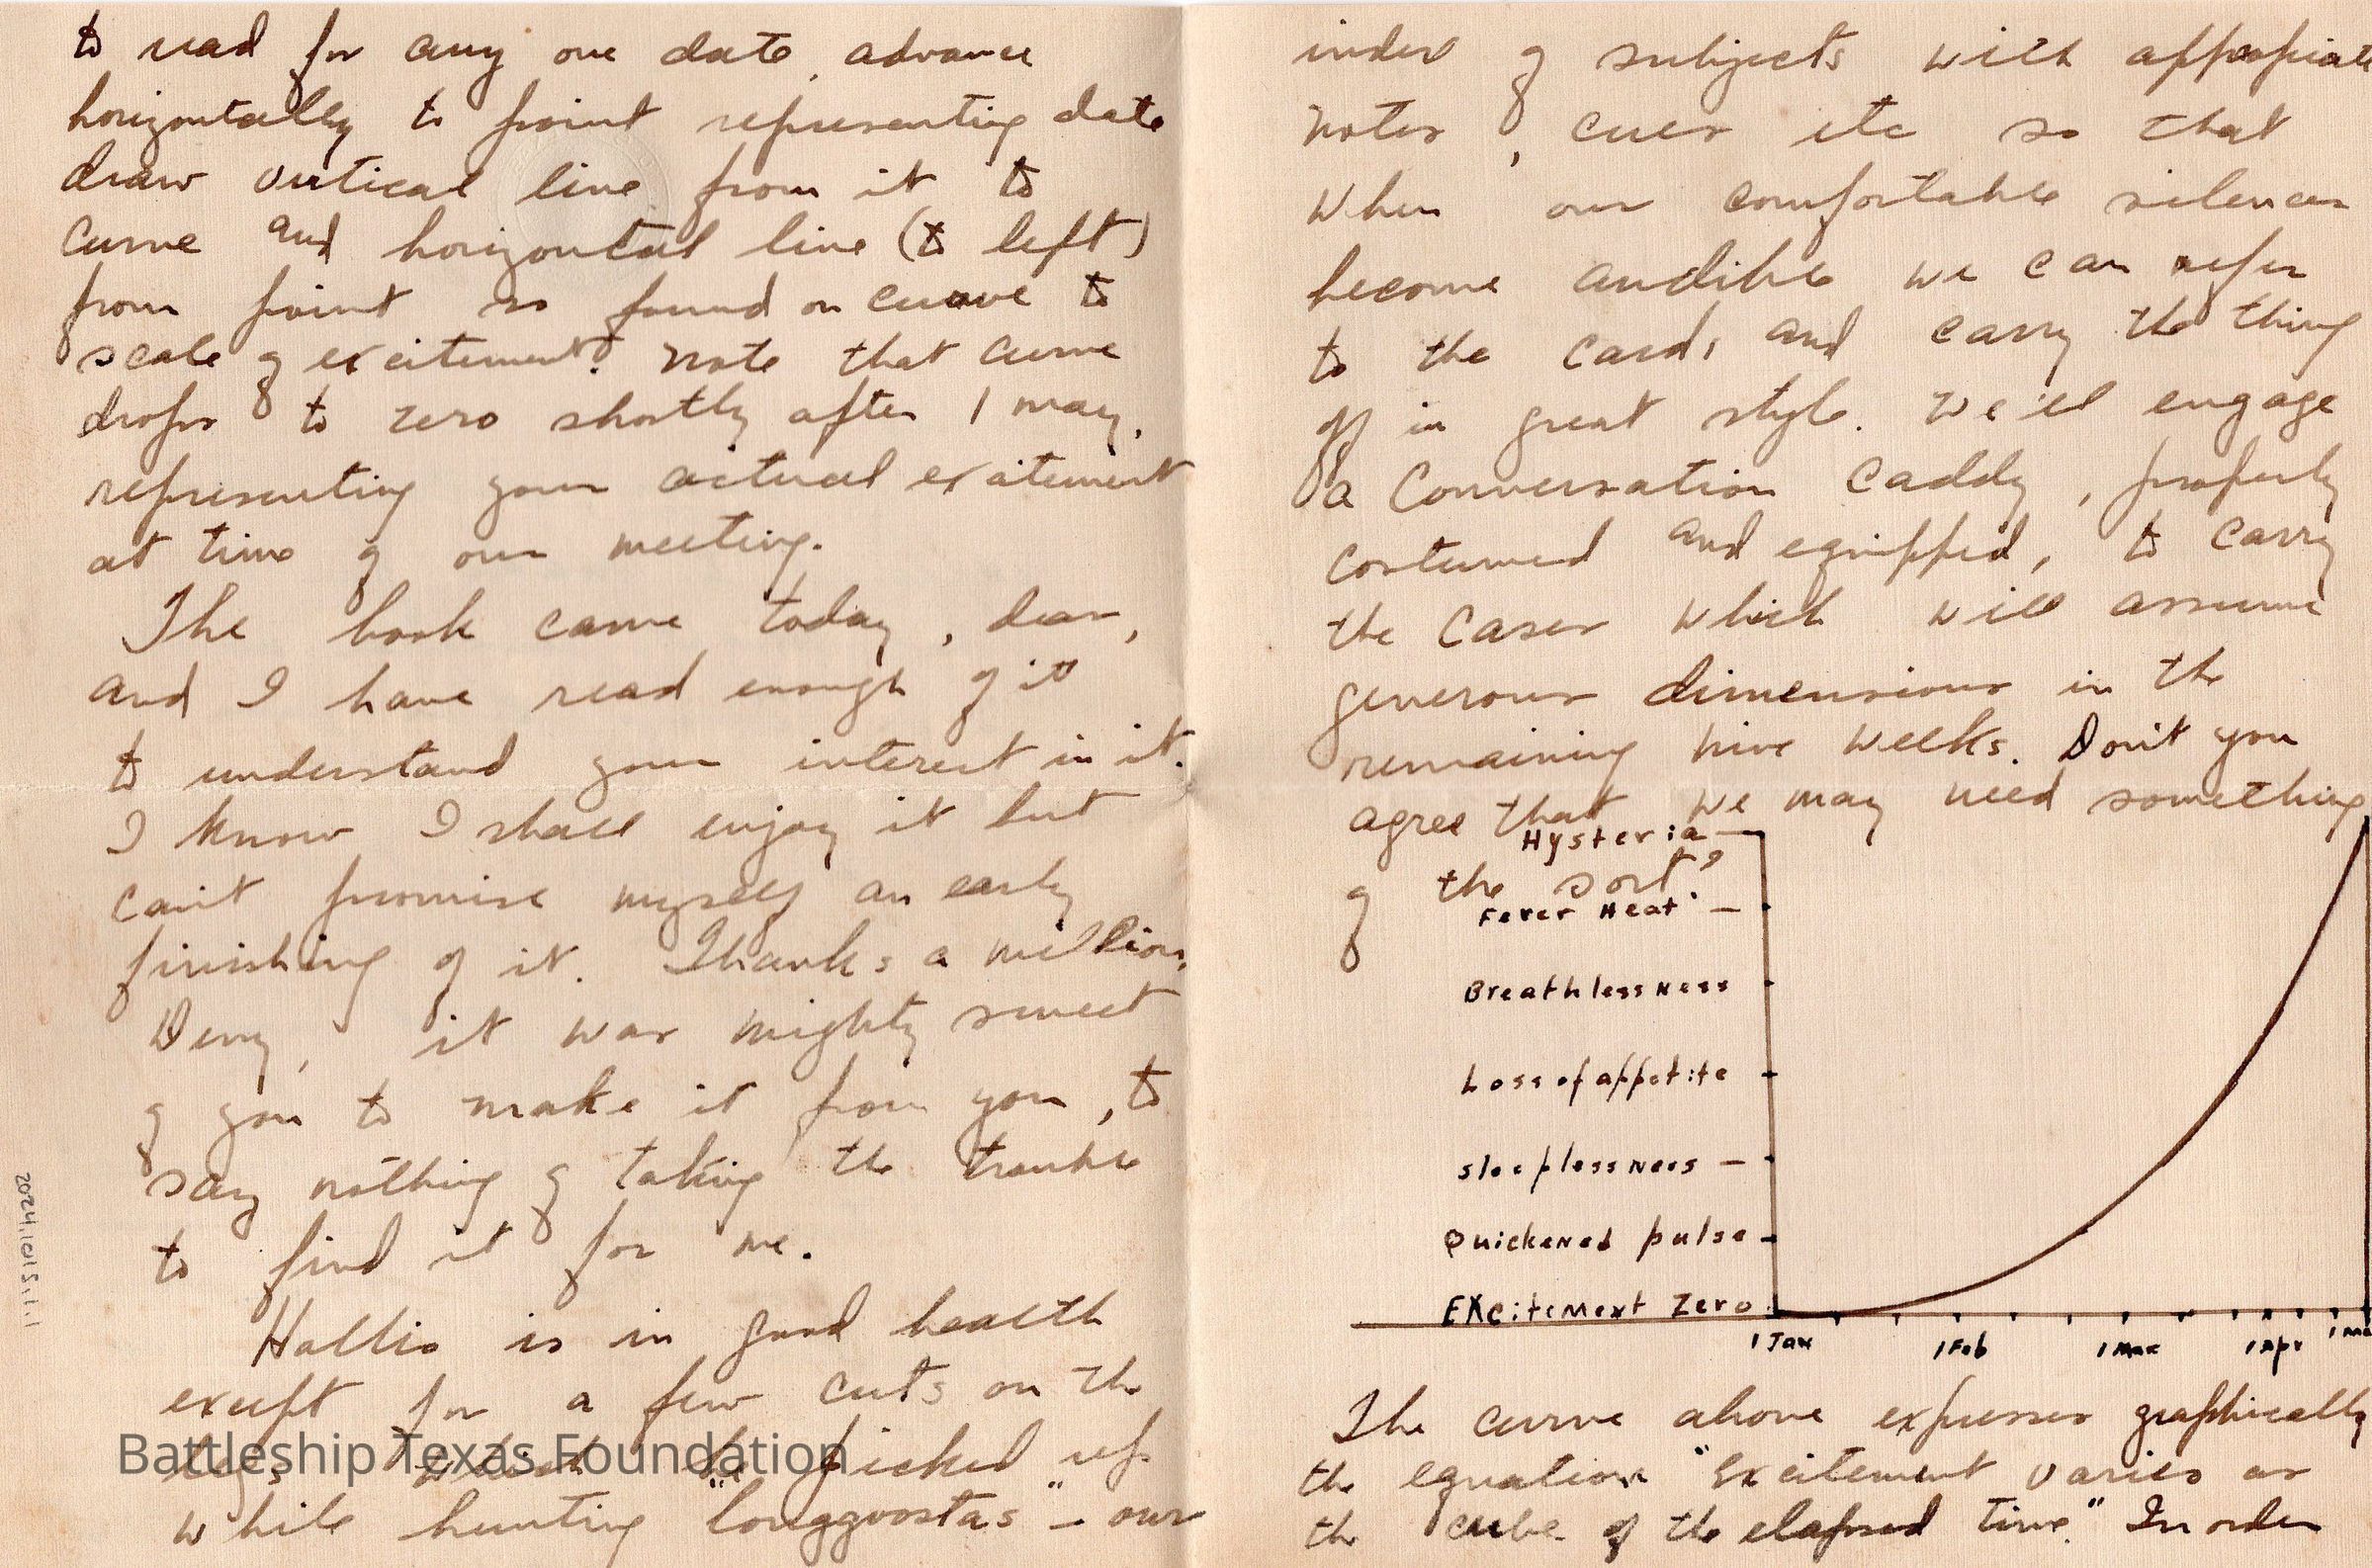 to read for any one date, advance
horizontally to point representing date
draw vertical line from it to
curve and horizontal line (to left)
from point so found on curve to
scale of excitement. Note that curve
drops to zero shortly after 1 May,
representing your actual excitement
at time of our meeting.
The book came today, dear,
and I have read enough of it
to understand your interest in it.
I know I shall enjoy it but
can't promise myself an early
finishing of it. Thanks a million,
it was mighty sweet
of you to make it from you, to
say nothing of taking the trouble
to find it for me.
Hollis is in good health
except for a few cuts on the
legs which he picked up
while hunting "longgoostas" - our
2024.1015.1.1
Battleship Texas Foundation
index of subjects with appropiate
notes, cues etc so that
when our comfortable silences
become audible we can refer
to the cards and carry the thing
off in great style. We'll engage
a Conversation Caddy, properly
costumed and equipped, to carry
the cases which will assume
generous dimensions in the
remaining nine weeks. Don't you
agree that we may need something
of the sort?
Hysteria
Fever Heat
Breathlessness
Loss of appetite
Sleeplessness
Quickened pulse
Excitement Zero
1 Jan 1 Feb 1 Mar 1 Apr 1 Ma
The curve above expresses graphically
the equation "Excitement varies as
the cube of the elapsed time." In order